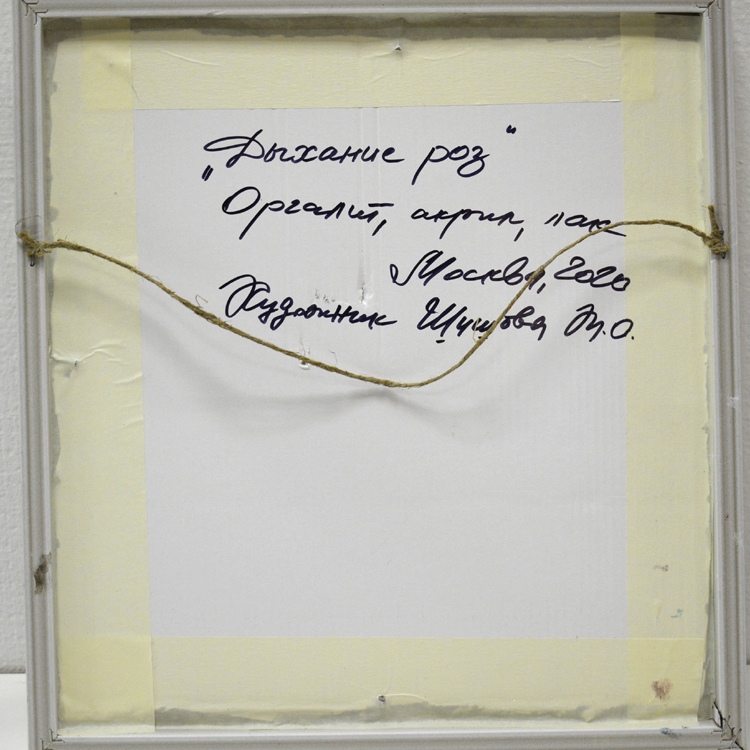 „Дыхание роз"
Оргалит, акрил, лак
Москва, 2020
Художник Шишова Т.О.